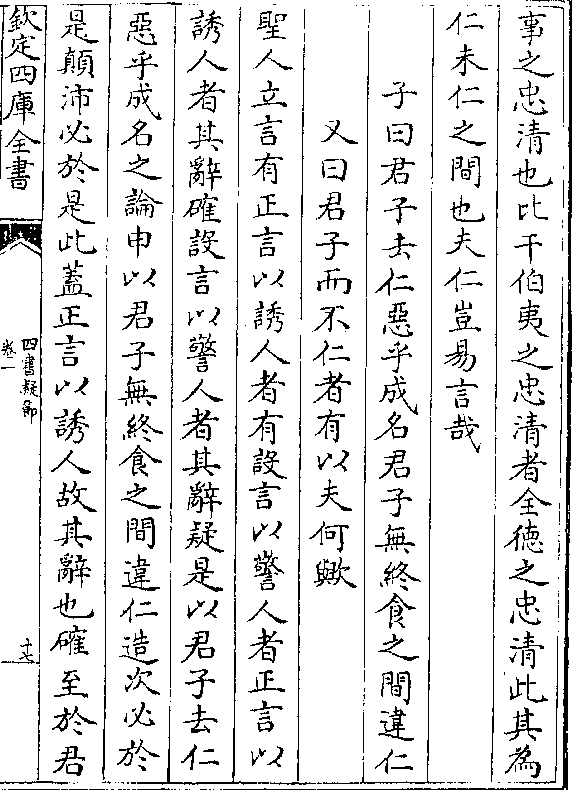 事之忠清也比干伯夷之忠清者全徳之忠清此其為
仁未仁之間也夫仁豈易言哉
子曰君子去仁惡乎成名君子無終食之間違仁
又曰君子而不仁者有以夫何歟
聖人立言有正言以誘人者有設言以警人者正言以
誘人者其辭確設言以警人者其辭疑是以君子去仁
惡乎成名之論申以君子無終食之間違仁造次必於
是顛沛必於是此蓋正言以誘人故其辭也確至於君
欽定四庫全書
四書疑節
卷一
十七